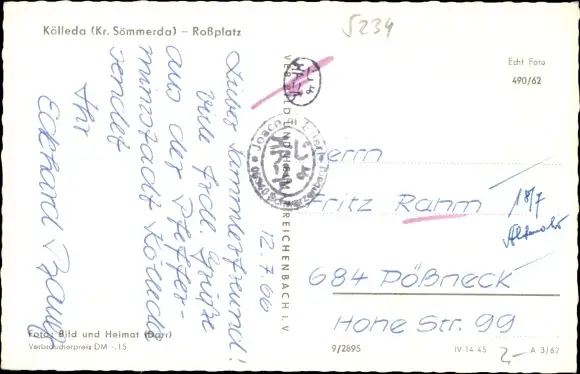 5234
Kölleda (Kr. Sömmerda) – Roßplatz
Echt Foto
490/62
Lieber Sammlerfreund!
Viele frdl. Grüße
aus der Pfeffer-
minzstadt Kölleda
sendet
Ihr
Eckhard
12.7.66
VEB BILD UND HEIMAT REICHENBACH i. V.
Herrn
Fritz Rahm
684 Pößneck
Hohe Str. 99
18/7
Foto: Bild und Heimat (Darr)
Verbraucherpreis DM -.15
9/2895
IV-14-45
2,-
A 3/62